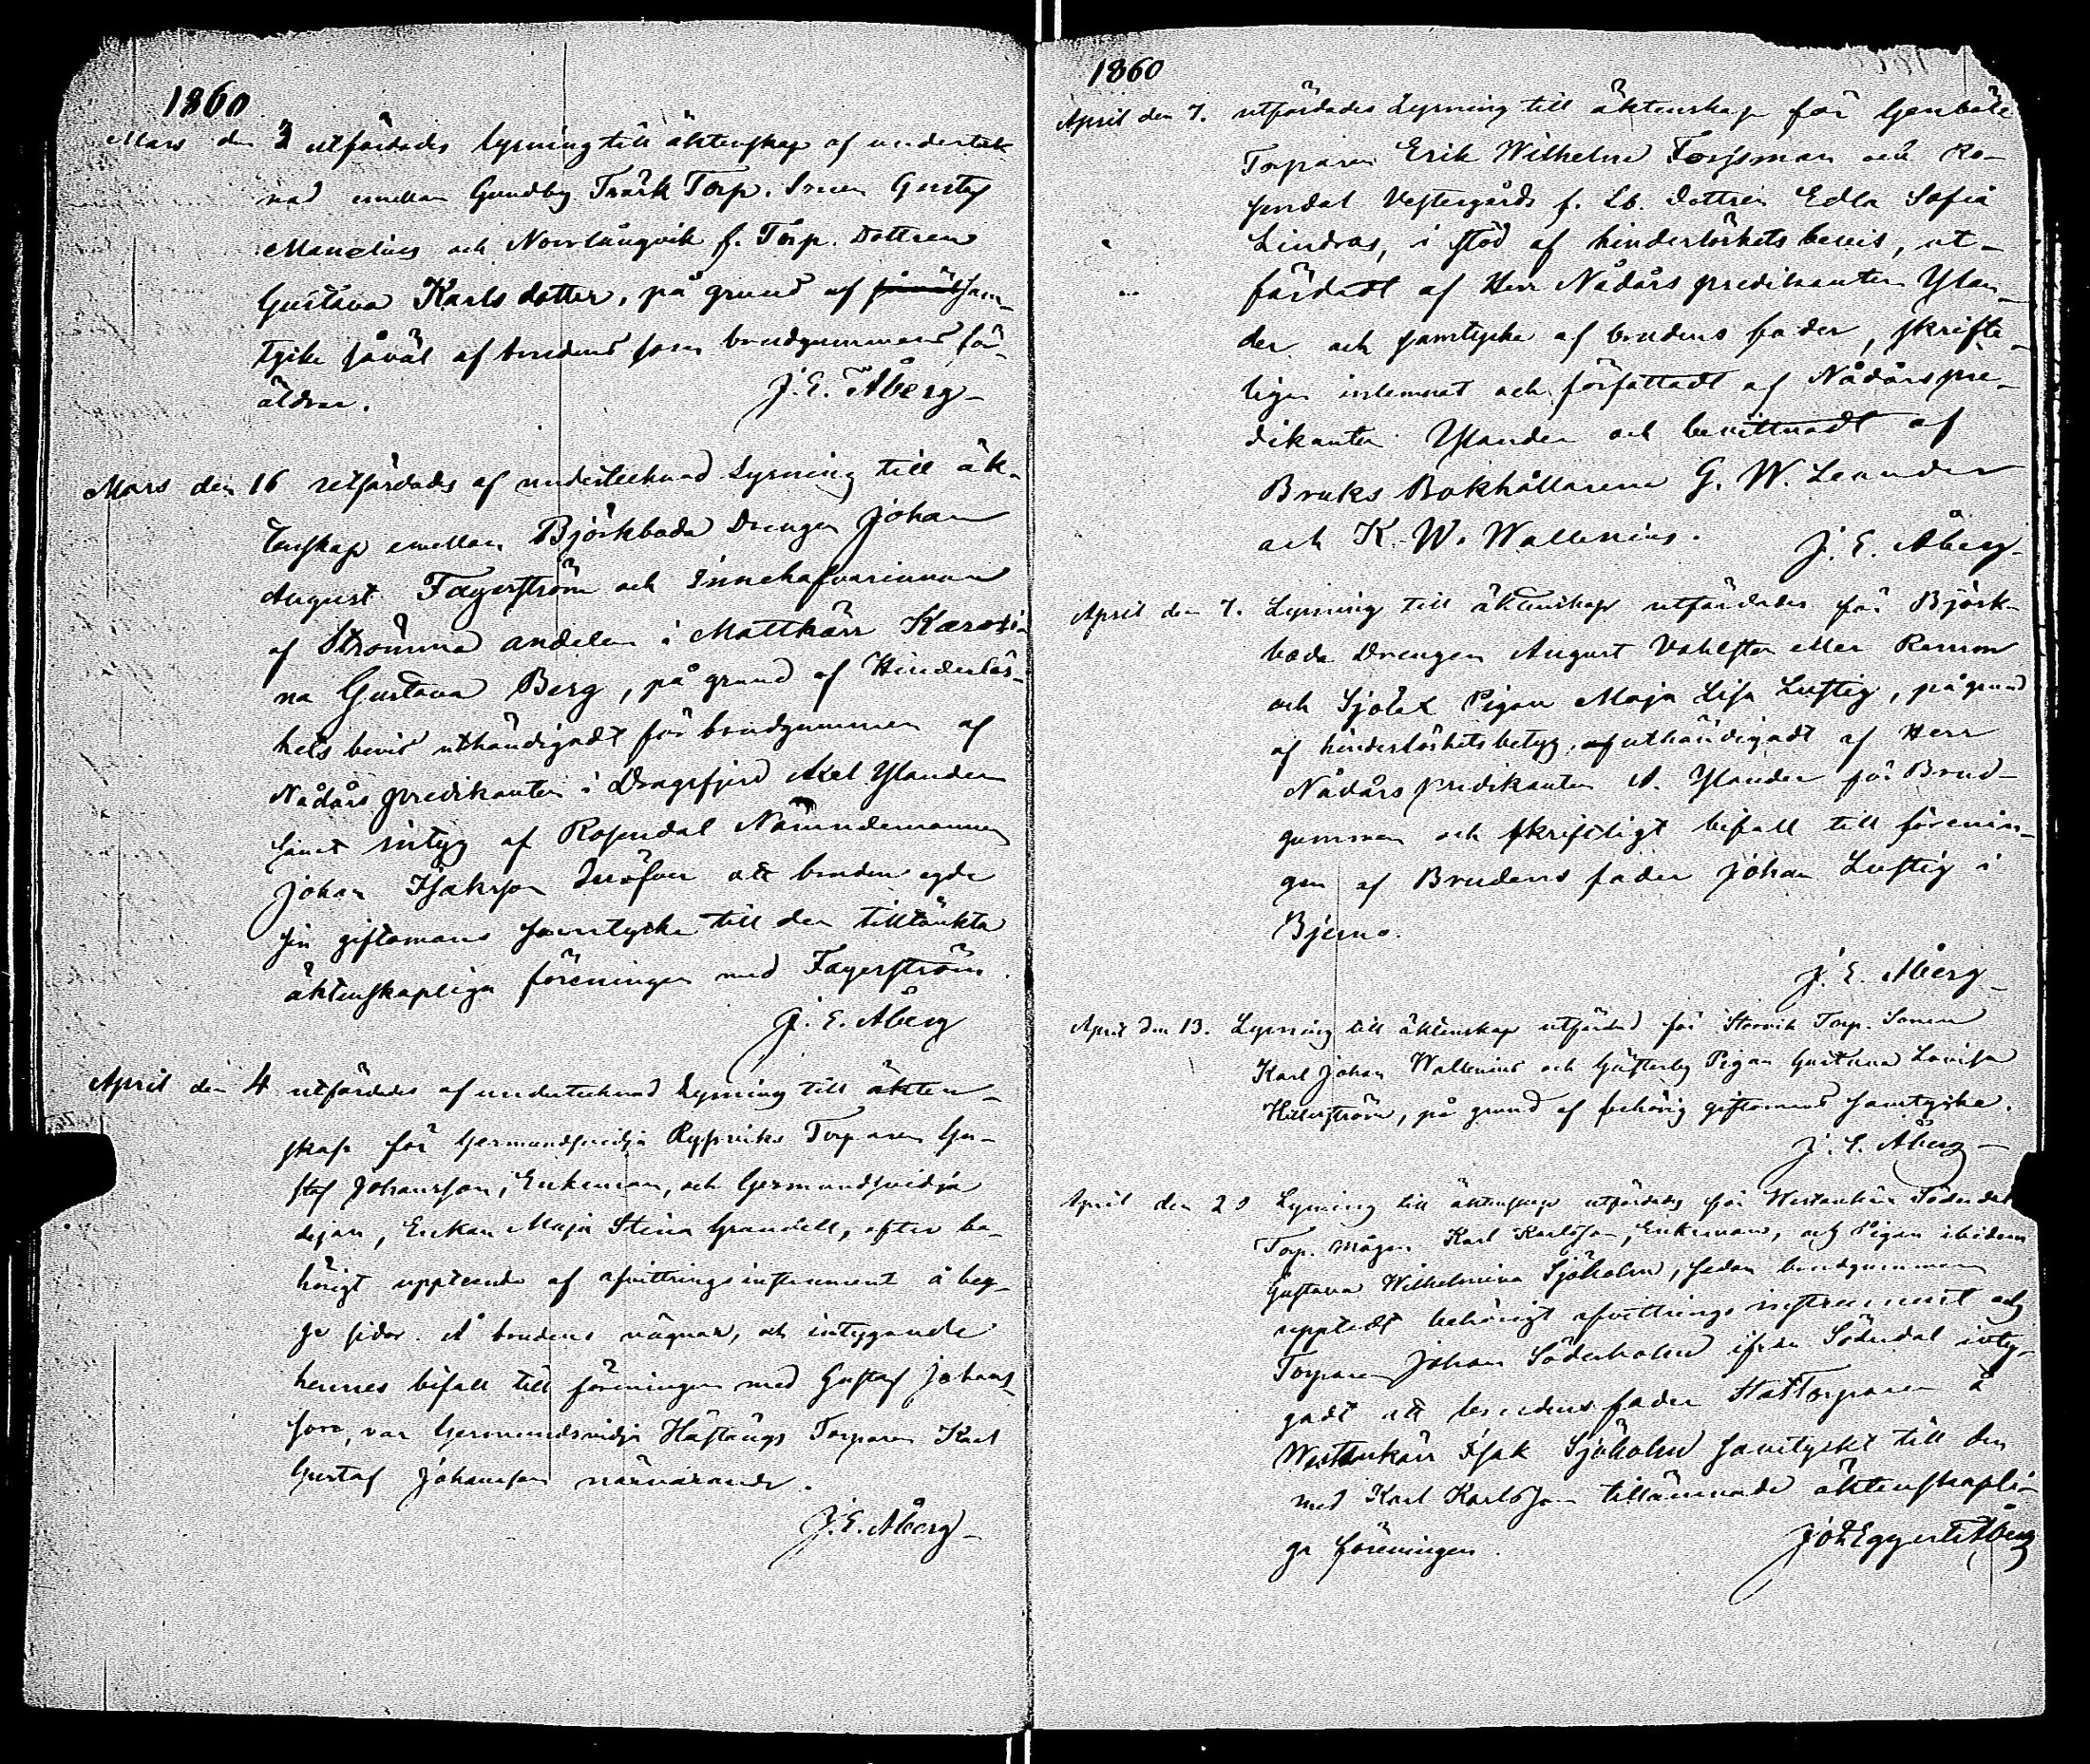 1860
Mars den 3 utfärdades lysning till äktenskap af underteck-
nad emellan Gundby Träsk Torp. Sonen Gustaf
Manelius och Norrlångvik f. Torp. Dottren
Gustava Karlsdotter, på grund af såväl sam-
tycke såväl af brudens som brudgummens för-
äldrar.
J. E. Åberg
Mars den 16 utfärdades af undertecknad Lysning till äk-
tenskap emellan Björkboda Drengen Johan
August Fagerström och Innehafvarinnan
af Strömma andelen i Mattkärr Karoli-
na Gustava Berg, på grund af Hinderlös-
hets bevis uthändigadt för brudgummen af
Nådårs predikanten i Dragsfjerd Axel Ylander
samt intyg af Rosendal Nämndemannen
Johan Isaksson att bruden egde
sin giftomans samtycke till den tilltänkta
äktenskapliga föreningen med Fagerström.
J. E. Åberg
April den 4 utfärdades af undertecknad Lysning till äkten-
skap för Germundsvidja Torparen Gu-
staf Johansson, Enkeman, och Germundsvidja
dejan, Enkan Maja Stina Grandell, efter be-
hörigt uppteende af afvittringsinstrument å beg-
ge sidor. Å brudens vägnar, och intygande
hennes bifall till föreningen med Gustaf Johans-
son, var Germundsvidja Hästängs Torparen Karl
Gustaf Johansson närvarande.
J. E. Åberg
1860
April den 7. utfärdades Lysning till äktenskap för Genböle
Torparen Erik Wilhelm Forssman och Ro-
sendal Vestergårds f. Lb. Dottren Edla Sofia
Lindros, i stöd af hinderlöshets bevis, ut-
färdadt af Herr Nådårs predikanten Ylan-
der och samtycke af brudens fader, skrifte-
ligen inlemnat och författadt af Nådårspre-
dikanten Ylander och bevittnadt af
Bruks Bokhållarena G. W. Leander
och K. W. Wallenius.
J. E. Åberg
April den 7. Lysning till äktenskap utfärdades för Björk-
boda Drengen August Vahlsten eller
och Sjölax Pigan Maja Lisa Lustig, på grund
af hinderlöshetsbetyg, af uthändigadt af Herr
Nådårs predikanten A. Ylander för Brud-
gummen och skriftligt bifall till förenin-
gen af Brudens fader Johan Lustig i
Bjerno.
J. E. Åberg
April den 13. Lysning till äktenskap utfärdad för Storvik Torp. Sonen
Karl Johan Wallenius och Gästerby Pigan Gustava Lovisa
på grund af behörig giftomans samtycke.
J. E. Åberg
April den Lysning till äktenskap utfärdades för Westankärr Söderdal
Torp. Mågen Karl Karlsson, Enkeman, och Pigan ibidem
Gustava Wilhelmina Sjöholm, sedan brudgummen
upptedt behörigt afvittrings instrument och
Torparen Johan Söderholm ifrån Söderdal inty-
gadt att brudens fader Stattorparen å
Westankärr Isak Sjöholm samtyckt till den
med Karl Karlsson tillämnade äktenskapli-
ga föreningen.
Joh Eggert Åberg